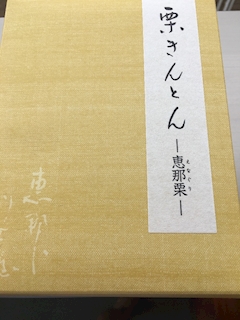 栗きんとん
―恵那栗―
えなぐり
恵那